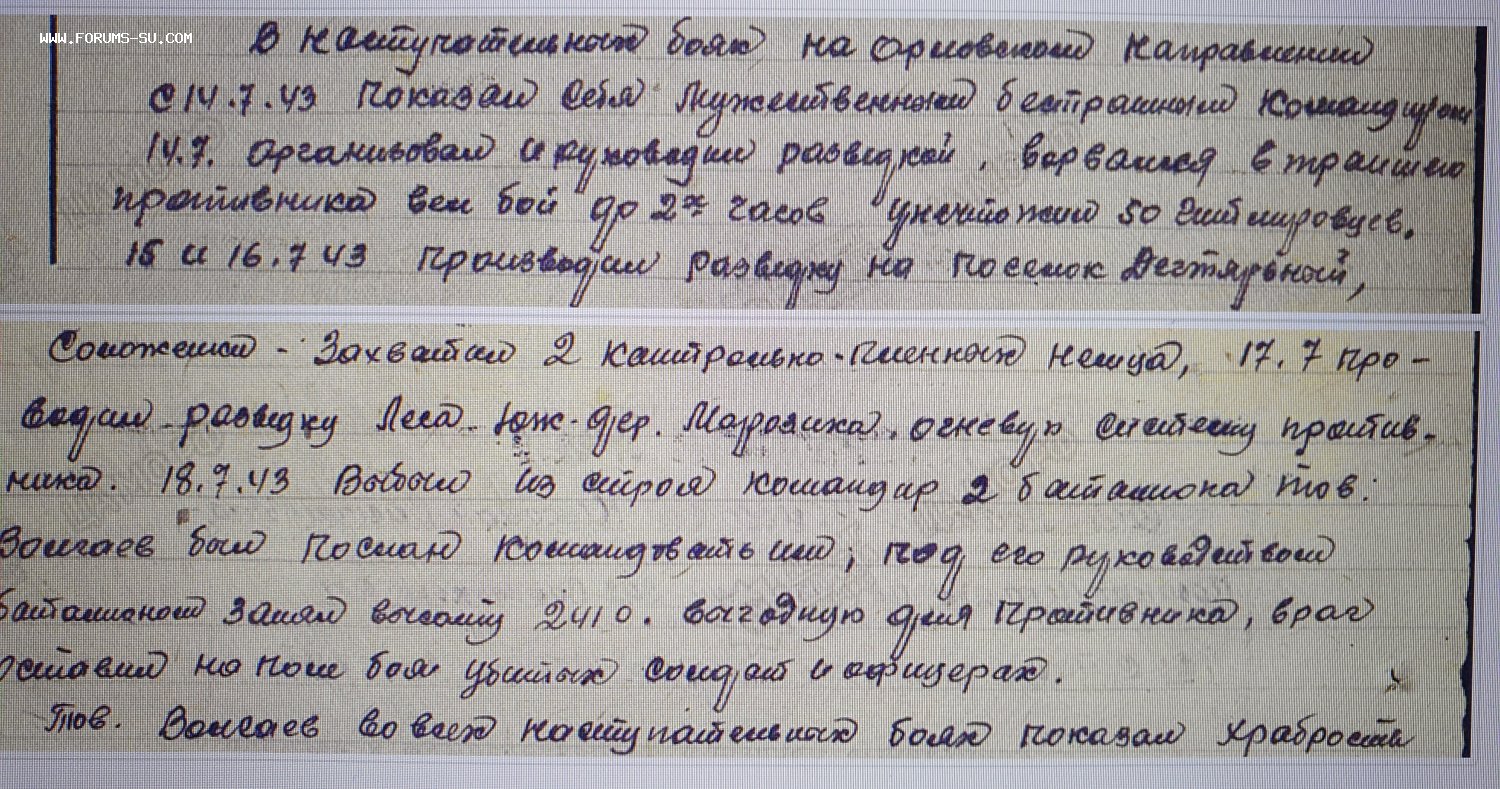 WWW.FORUMS-SU.COM
В наступательных боях на орловском направлении
С 14.7.43 показал себя мужественным бестрашным командиром
14.7. организовал и руководил разведкой, ворвался в траншею
противника вел бой до 2х часов уничтожил 50 гитлеровцев.
15 и 16.7 43 производил разведку на поселок Дегтярьный,
захватил 2 контрольно-пленных немца, 17.7 про-
водил разведку леса юж. дер. огневую систему против-
ника. 18.7.43 Выбыл из строя командир 2 баталиона тов.
Волгаев был послан командовать им, под его руководством
баталионом занял высоту 2410. выгодную для противника, враг
оставил на поле боя убитых солдат и офицерах.
Тов. Волгаев во всех наступательных боях показал храбрость